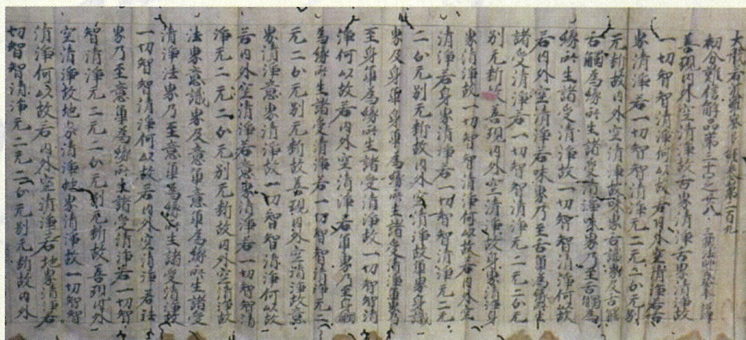 大般若波羅蜜多經卷第二百九
初分難信解品第三十四之廿八 三藏法師玄奘奉 詔譯
善現内外空清淨故舌界清淨舌界清淨故
一切智智清淨何以故若内外空清淨若舌
界清淨若一切智智清淨无二无二分无別
无斷故内外空清淨故味界舌識界及舌觸
舌觸為緣所生諸受清淨味界乃至舌觸為
緣所生諸受清淨故一切智智清淨何以故
若内外空清淨若味界乃至舌觸為緣所生
諸受清淨若一切智智清淨无二无二分无
別无斷故善現内外空清淨故身界清淨身
界清淨故一切智智清淨何以故若内外空
清淨若身界清淨若一切智智清淨无二无
二分无別无斷故内外空清淨故觸界身識
界及身觸身觸為緣所生諸受清淨觸界乃
至身觸為緣所生諸受清淨故一切智智清
淨何以故若内外空清淨若觸界乃至身觸
為緣所生諸受清淨若一切智智清淨无二
无二分无別无斷故善現内外空清淨故意
界清淨意界清淨故一切智智清淨何以故
若内外空清淨若意界清淨若一切智智清
淨无二无二分无別无斷故内外空清淨故
法界意識界及意觸意觸為緣所生諸受
清淨法界乃至意觸為緣所生諸受清淨故
一切智智清淨何以故若内外空清淨若法
界乃至意觸為緣所生諸受清淨若一切智
智清淨无二无二分无別无斷故善現内外
空清淨故地界清淨地界清淨故一切智智
清淨何以故若内外空清淨若地界清淨若一
切智智清淨无二无二分无別无斷故内外